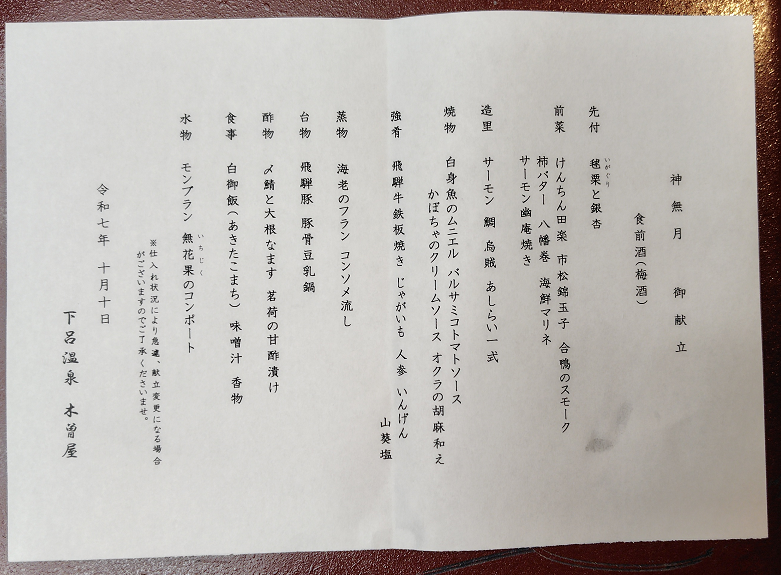 神無月　御献立
食前酒（梅酒）
先付　毬栗と銀杏
いがぐり
前菜　けんちん田楽　市松錦玉子　合鴨のスモーク
柿バター　八幡巻　海鮮マリネ
サーモン幽庵焼き
造里　サーモン　鯛　烏賊　あしらい一式
焼物　白身魚のムニエル　バルサミコトマトソース
かぼちゃのクリームソース　オクラの胡麻和え
強肴　飛騨牛鉄板焼き　じゃがいも　人参　いんげん
山葵塩
蒸物　海老のフラン　コンソメ流し
台物　飛騨豚　豚骨豆乳鍋
酢物　〆鯖と大根なます　茗荷の甘酢漬け
食事　白御飯（あきたこまち）　味噌汁　香物
水物　モンブラン　無花果のコンポート
いちじく
※仕入れ状況により急遽、献立変更になる場合
がございますのでご了承くださいませ。
令和七年　十月十日
下呂温泉　木曽屋